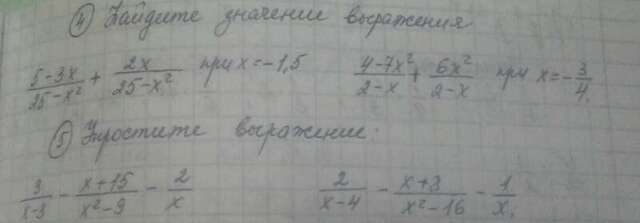 ④ Найдите значение выражения
(5-3x)/(25-x²) + 2x/(25-x²) при x=-1,5 (4-7x²)/(2-x) + 6x²/(2-x) при x=-3/4
⑤ Упростите выражение:
3/(x-3) - (x+15)/(x²-9) - 2/x 2/(x-4) - (x+8)/(x²-16) - 1/x